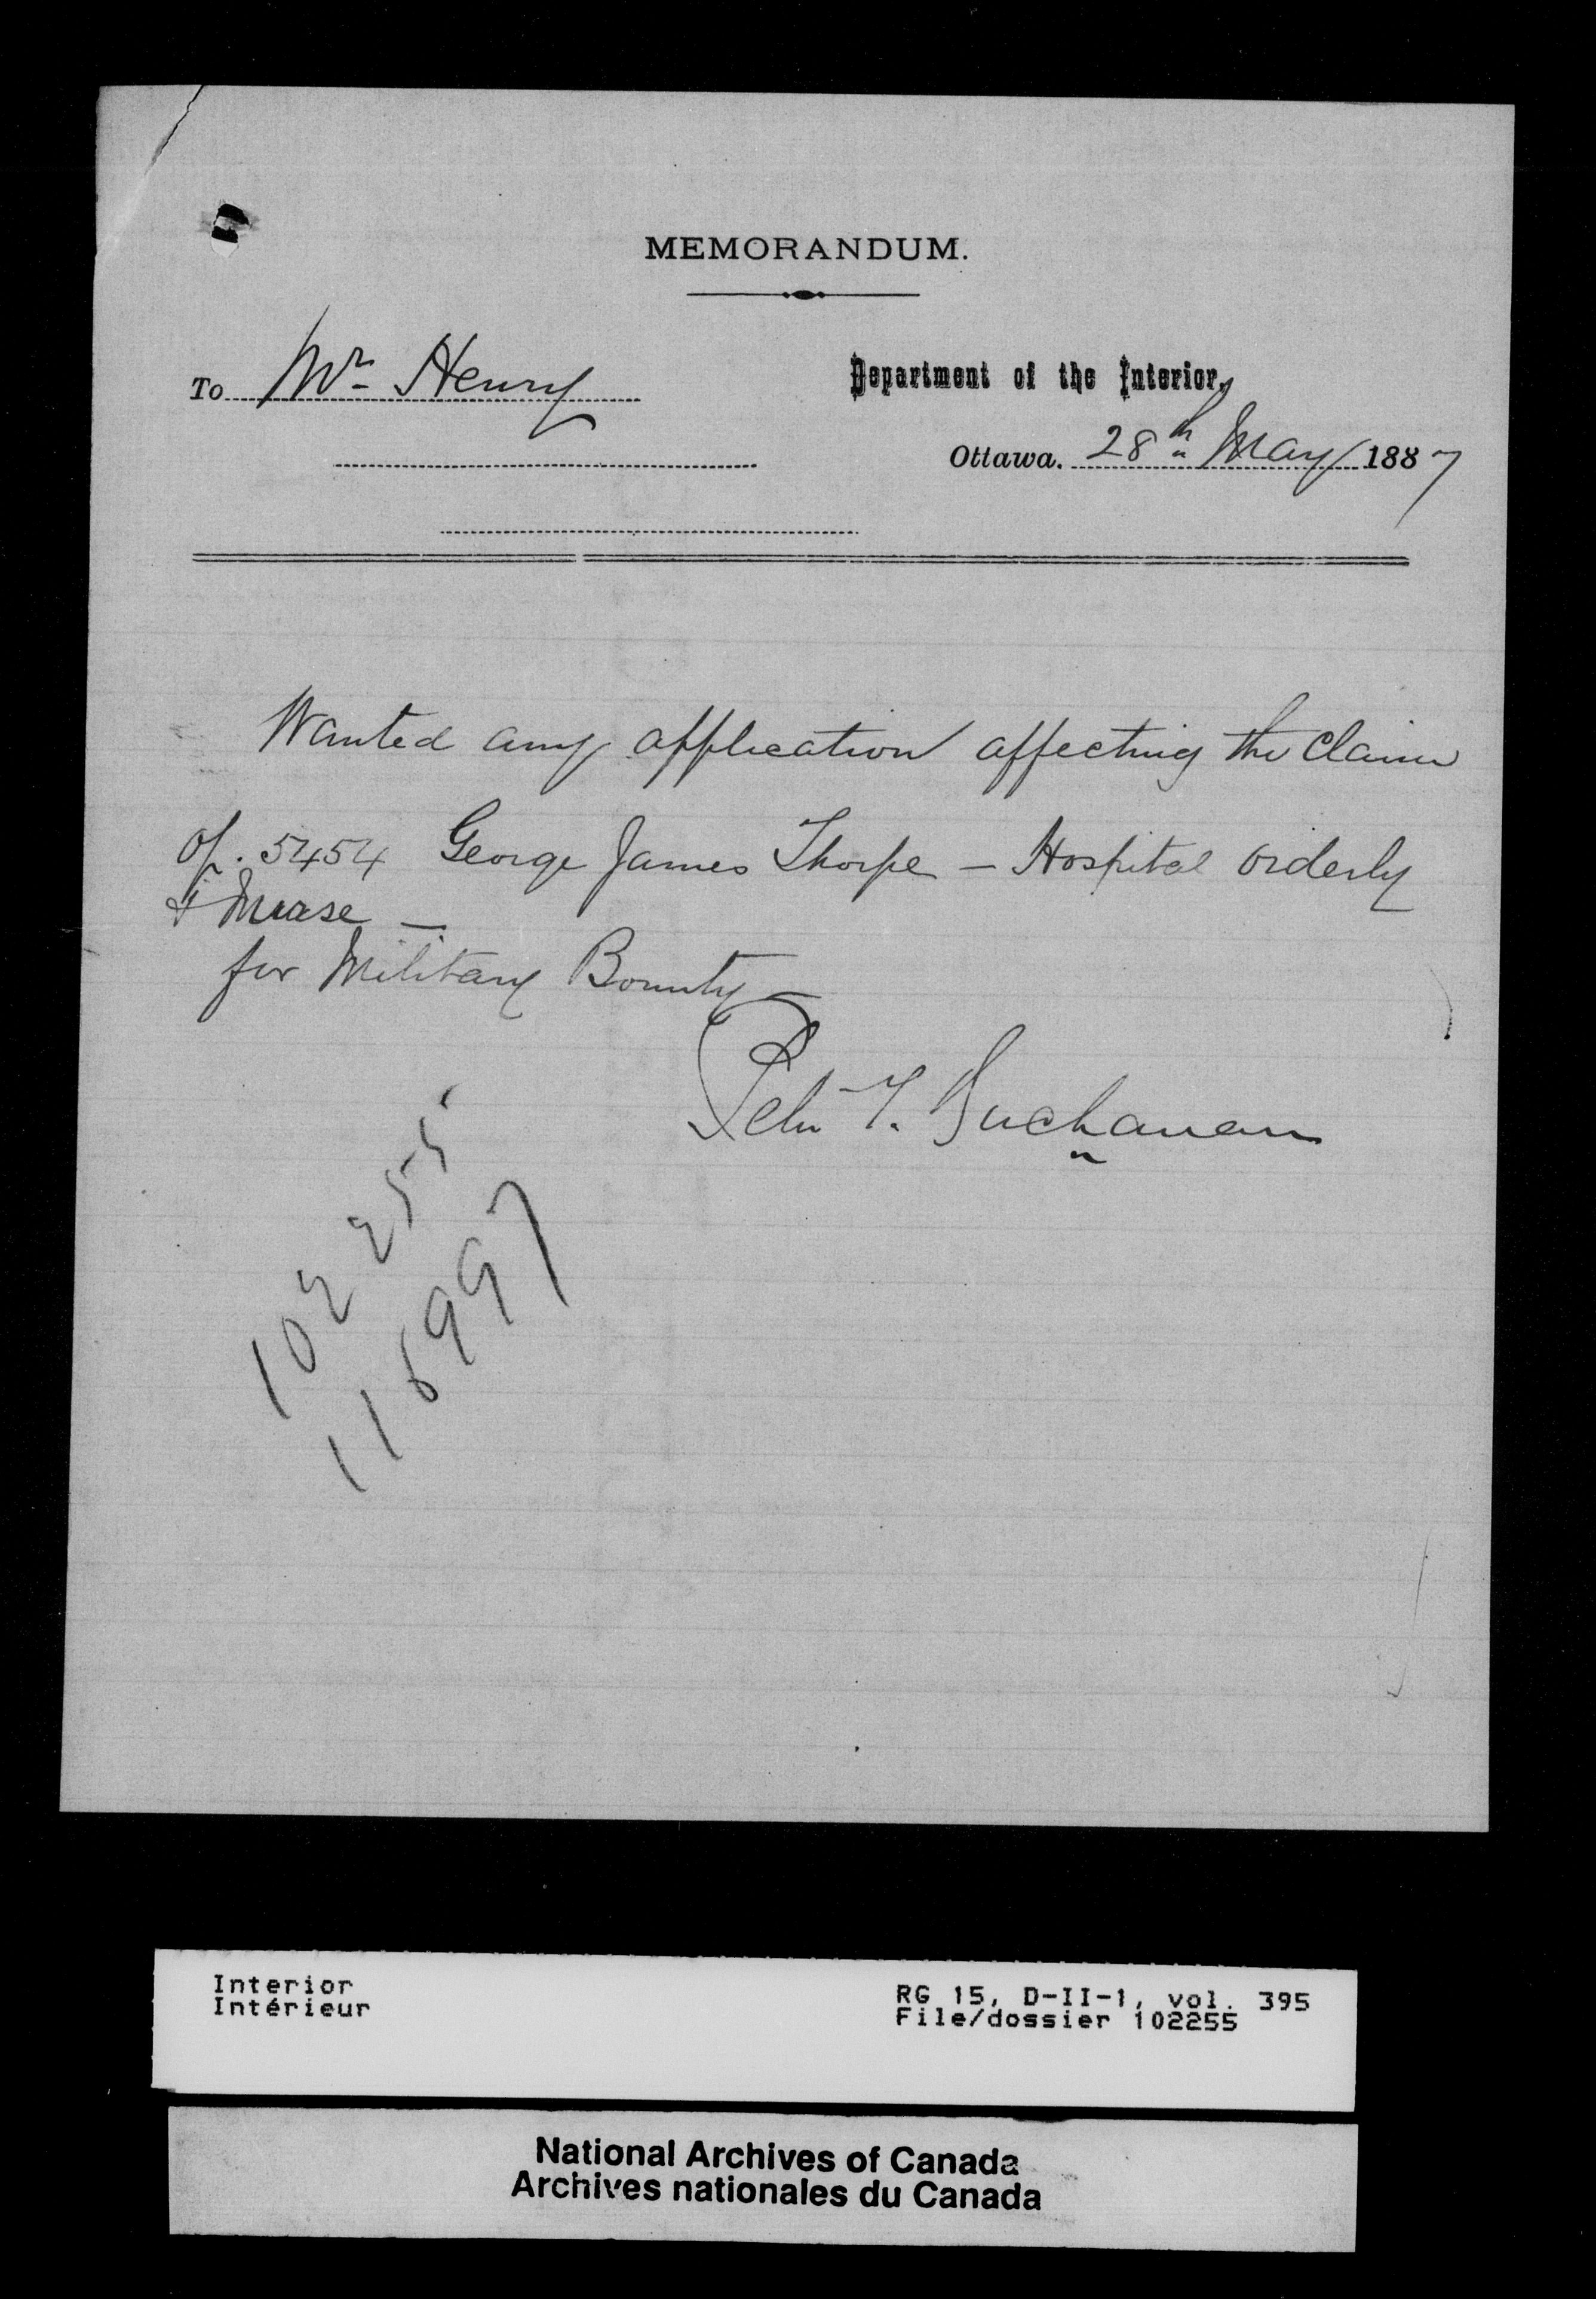 MEMORANDUM.
To Mr Henry
Department of the Interior,
Ottawa. 28th May 1887
Wanted any application affecting the Claim
of. 5454 George James Thorpe – Hospital orderly
& Nurse –
for Military Bounty –
Peter T. Buchanan
102255
116997
Interior
Intérieur
RG 15, D-II-1, vol. 395
File/dossier 102255
National Archives of Canada
Archives nationales du Canada